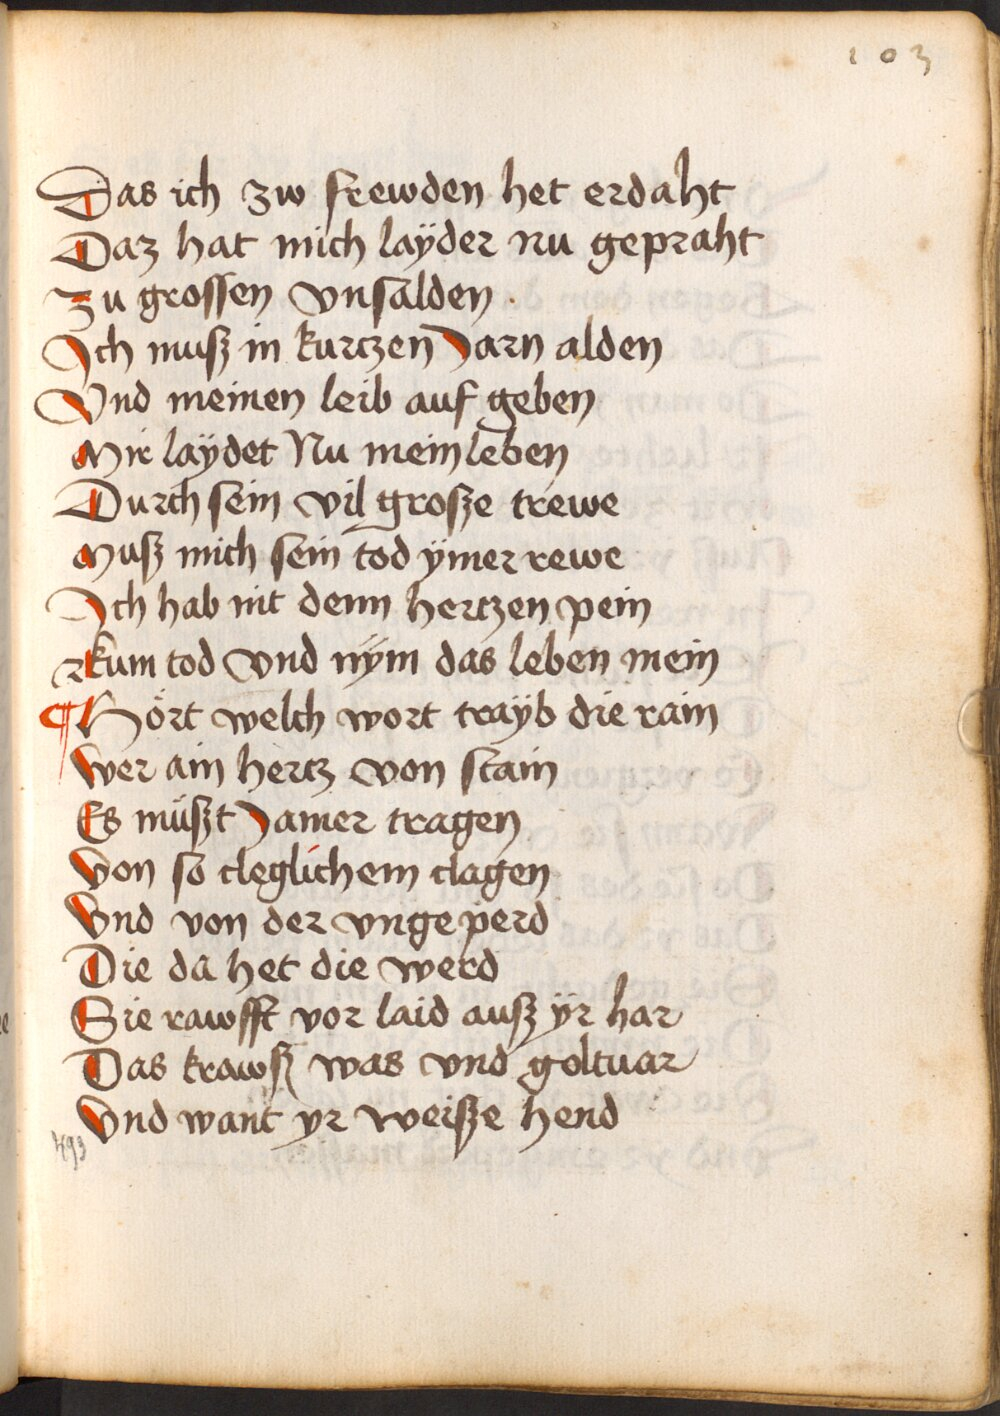 103
Das ich zw frewden het erdaht
Daz hat mich laÿder nu gepraht
Zu grossen vnsalden
Ich musz in kurczen Jarn alden
Vnd meinen leib auf geben
Mir laÿdet Nu mein leben
Durch sein vil grosze trewe
Musz mich sein tod ÿmer rewe
Ich hab nit denn herczen pein
Kum tod vnd nÿm das leben mein
¶ Hört welch wort trayb die rain
Wer ain hercz von stain
Es müszt Jamer tragen
Von so cleglichem clagen
Vnd von der vngeperd
Die da het die werd
Sie rawfft vor laid ausz ÿr har
Das krawsz was vnd goltuar
Vnd want yr weisze hend
493